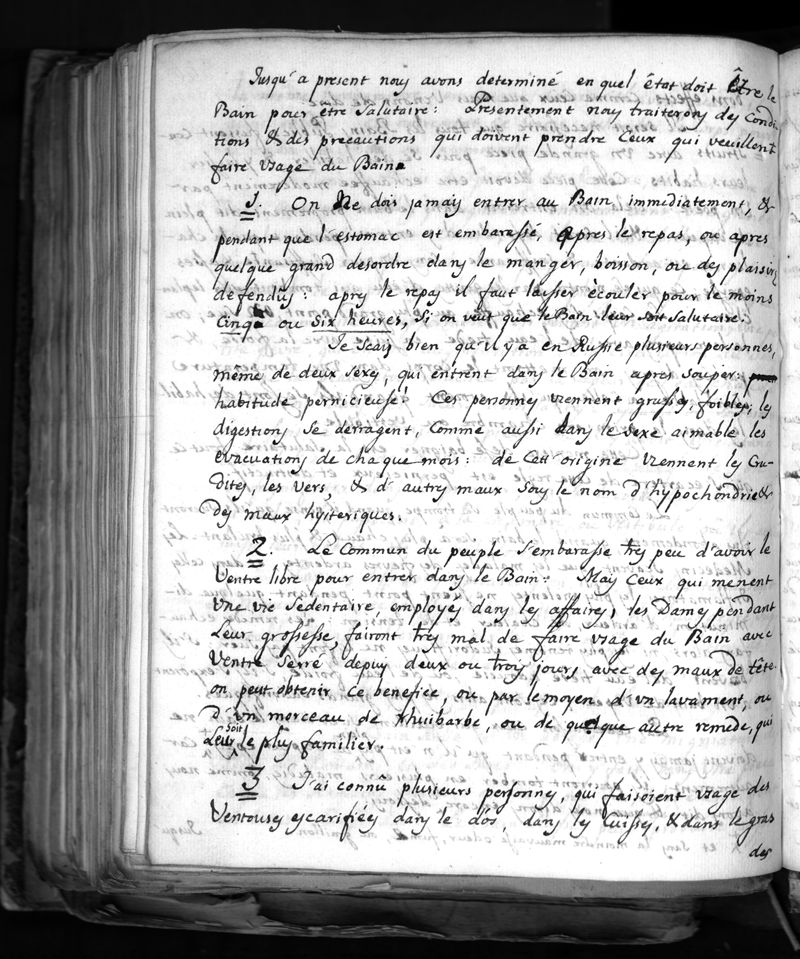 Jusqu'a present nous avons determiné en quel êtat doit Être le
Bain pour être salutaire: Presentement nous traiterons des Condi
tions & des precautions qui doivent prendre Ceux qui veuillent
faire usage du Bain.
1. On Ne dois jamais entrer au Bain immediatement, &
pendant que l'estomac est embarassé, Apres le repas, ou apres
quelque grand desordre dans le manger, boisson, ou des plaisirs
defendus: apres le repas il faut laisser ècouler pour le moins
Cinq ou six heures, si on veut que le Bain leur soit salutaire.
Je scais bien qu'il y a en Russie plusieurs personnes,
même de deux sexes, qui entrent dans le Bain apres souper:
habitude pernicieuse! Ces personnes viennent grasses, foibles, les
digestions se derragent, Comme aussi dans le sexe aimable les
evacuations de chaque mois: de Cett' origine viennent les Cru-
dites, les vers, & d'autres maux sous le nom d'hypochondrie &
des maux hysteriques.
2. Le Commun du peuple s'embarasse tres peu d'avoir le
Ventre libre pour entrer dans le Bain: Mais Ceux qui menent
vne vie sedentaire, employés dans les affaires, les Dames pendant
Leur grossesse, fairont tres mal de faire vsage du Bain avec
Ventre serré depuis deux ou trois jours avec des maux de tête.
on peut obtenir ce benefice, ou par le moyen d'vn lavament, ou
d'vn morceau de Rhuibarbe, ou de quelque autre remede, qui
Leur soit le plus familier.
3 J'ai connû plusieurs personnes, qui faisoient vsage des
Ventouses escarifiées dans le dos, dans les Cuisses, & dans le gras
des